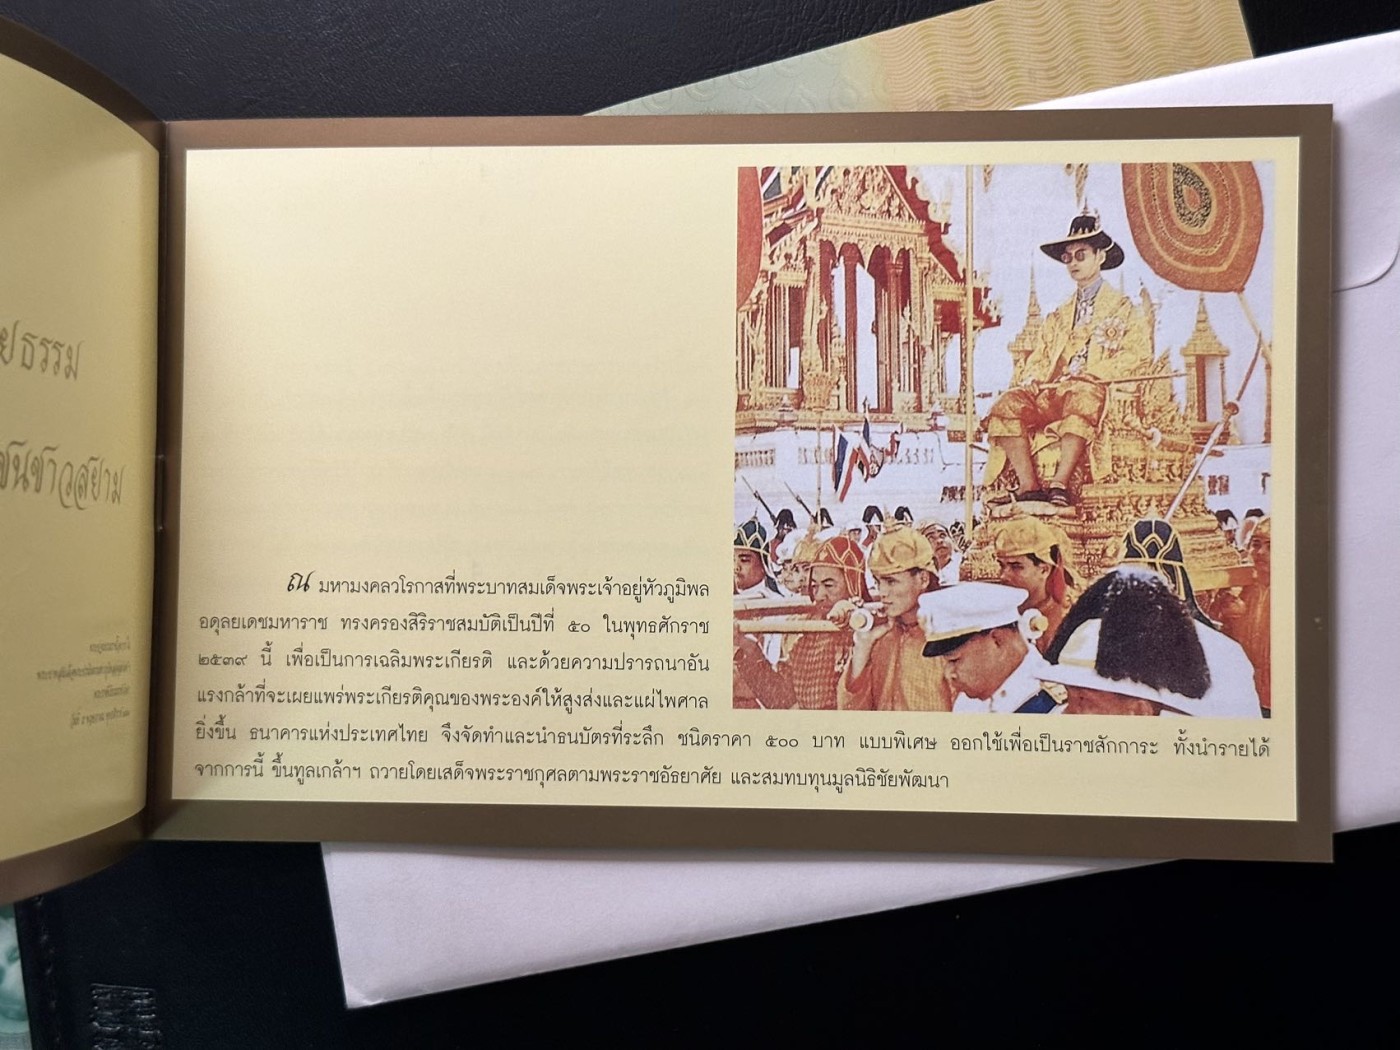 ยธรรม
ชนชาวสยาม
ณ มหามงคลวโรกาสที่พระบาทสมเด็จพระเจ้าอยู่หัวภูมิพล
อดุลยเดชมหาราช ทรงครองสิริราชสมบัติเป็นปีที่ ๕๐ ในพุทธศักราช
๒๕๓๙ นี้ เพื่อเป็นการเฉลิมพระเกียรติ และด้วยความปรารถนาอัน
แรงกล้าที่จะเผยแพร่พระเกียรติคุณของพระองค์ให้สูงส่งและแผ่ไพศาล
ยิ่งขึ้น ธนาคารแห่งประเทศไทย จึงจัดทำและนำธนบัตรที่ระลึก ชนิดราคา ๕๐๐ บาท แบบพิเศษ ออกใช้เพื่อเป็นราชสักการะ ทั้งนำรายได้
จากการนี้ ขึ้นทูลเกล้าฯ ถวายโดยเสด็จพระราชกุศลตามพระราชอัธยาศัย และสมทบทุนมูลนิธิชัยพัฒนา